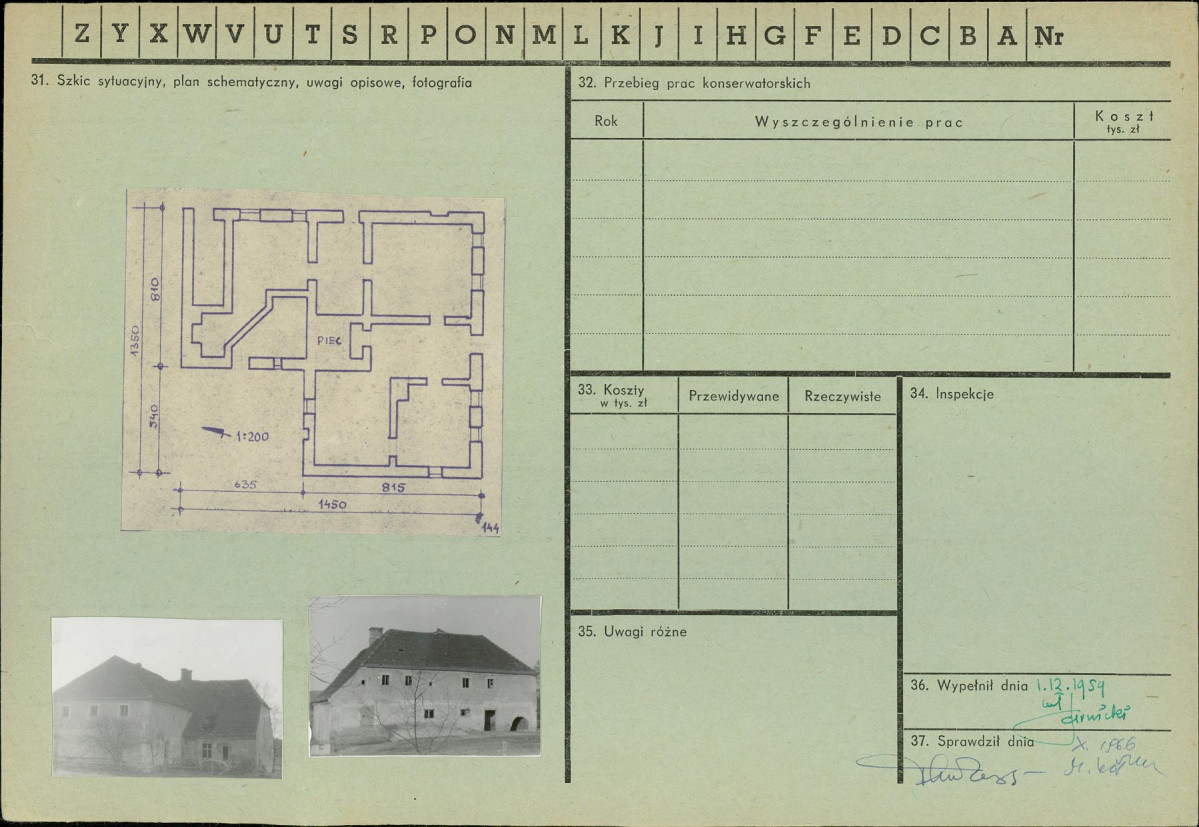 Z Y X W V U T S R P O N M L K J I H G F E D C B A Nr
31. Szkic sytuacyjny, plan schematyczny, uwagi opisowe, fotografia
810
1350
540
PIEC
1:200
635
815
1450
144
32. Przebieg prac konserwatorskich
Rok
Wyszczególnienie prac
Koszt
tys. zł
33. Koszty
w tys. zł
Przewidywane
Rzeczywiste
34. Inspekcje
35. Uwagi różne
36. Wypełnił dnia 1.IX.1959
37. Sprawdził dnia X. 1966